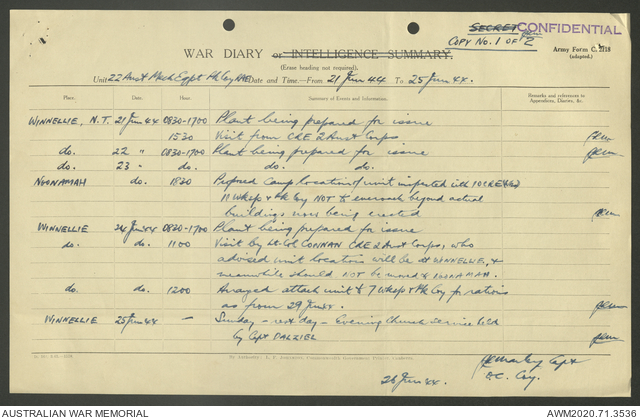 SECRET CONFIDENTIAL
COPY No. 1 OF 2
WAR DIARY or INTELLIGENCE SUMMARY.
Army Form C. 2118
(adapted.)
(Erase heading not required).
Unit 22 Aust Mech Eqpt Pk Coy RAE Date and Time—From 21 Jun 44 To 25 Jun 44.
Place. Date. Hour. Summary of Events and Information. Remarks and references to Appendices, Diaries, &c.
WINNELLIE, N.T. 21 Jun 44 0830-1700 Plant being prepared for issue
1530 Visit from CRE 2 Aust Corps
do. 22 " 0830-1700 Plant being prepared for issue
do. 23 " do. do. do. do.
NOONAMAH do. 1830 Proposed Camp location of unit inspected with
11 Wksp & Pk Coy NOT to encroach beyond actual
buildings now being erected
WINNELLIE 24 Jun 44 0830-1700 Plant being prepared for issue
do. do. 1100 Visit by Lt Col CONNAN CRE 2 Aust Corps, who
advised unit location will be at WINNELLIE, &
meanwhile should NOT be moved to NOONAMAH.
do. do. 1200 Arranged attach unit to 7 Wksp & Pk Coy for rations
as from 29 Jun 44.
WINNELLIE 25 Jun 44 — Sunday - rest day - Evening Church Service held
by Capt DALZIEL
Capt
26 Jun 44. O.C. Coy.
AUSTRALIAN WAR MEMORIAL
AWM2020.71.3536